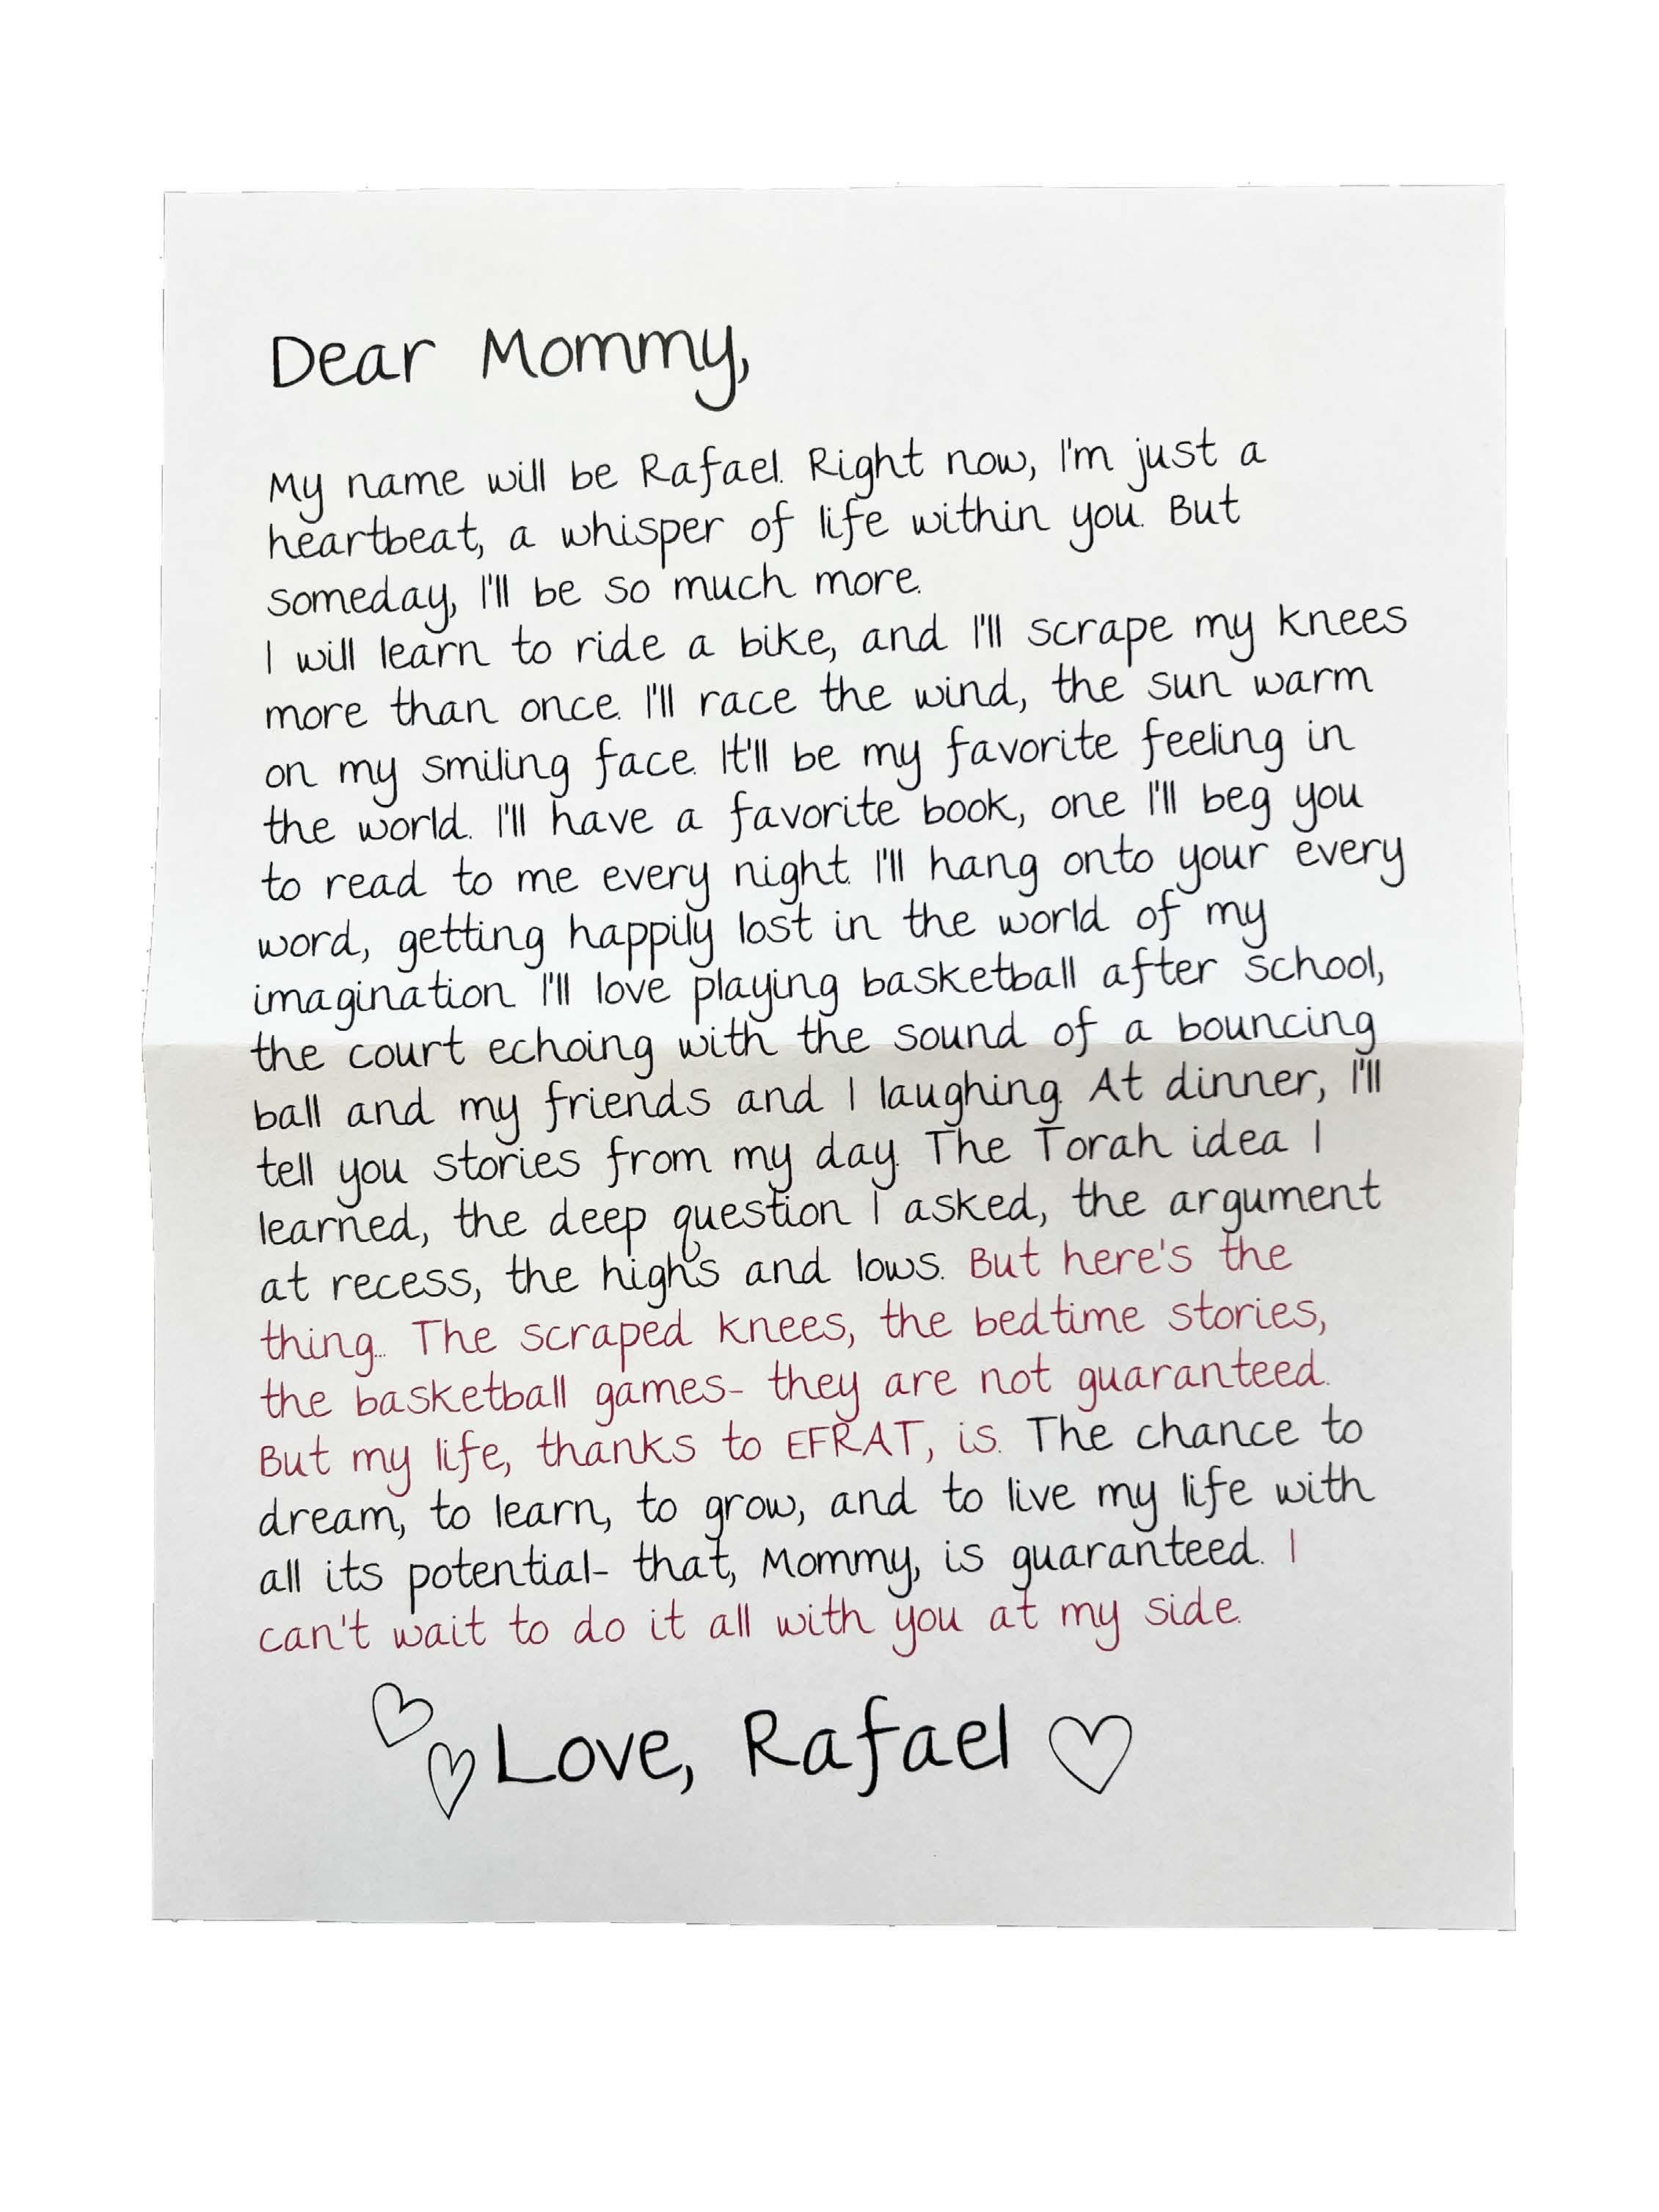 Dear Mommy,
My name will be Rafael. Right now, I'm just a
heartbeat, a whisper of life within you. But
someday, I'll be so much more.
I will learn to ride a bike, and I'll scrape my knees
more than once. I'll race the wind, the sun warm
on my smiling face. It'll be my favorite feeling in
the world. I'll have a favorite book, one I'll beg you
to read to me every night. I'll hang onto your every
word, getting happily lost in the world of my
imagination. I'll love playing basketball after school,
the court echoing with the sound of a bouncing
ball and my friends and I laughing. At dinner, I'll
tell you stories from my day. The Torah idea I
learned, the deep question I asked, the argument
at recess, the highs and lows. But here's the
thing... The scraped knees, the bedtime stories,
the basketball games- they are not guaranteed.
But my life, thanks to EFRAT, is. The chance to
dream, to learn, to grow, and to live my life with
all its potential- that, Mommy, is guaranteed. I
can't wait to do it all with you at my side.
Love, Rafael